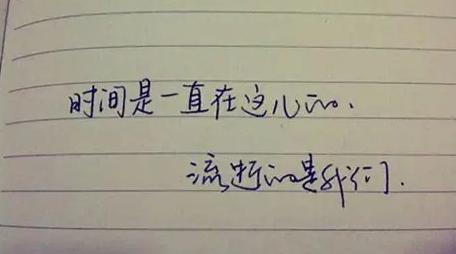 时间是一直在这儿的.
流逝的是我们.